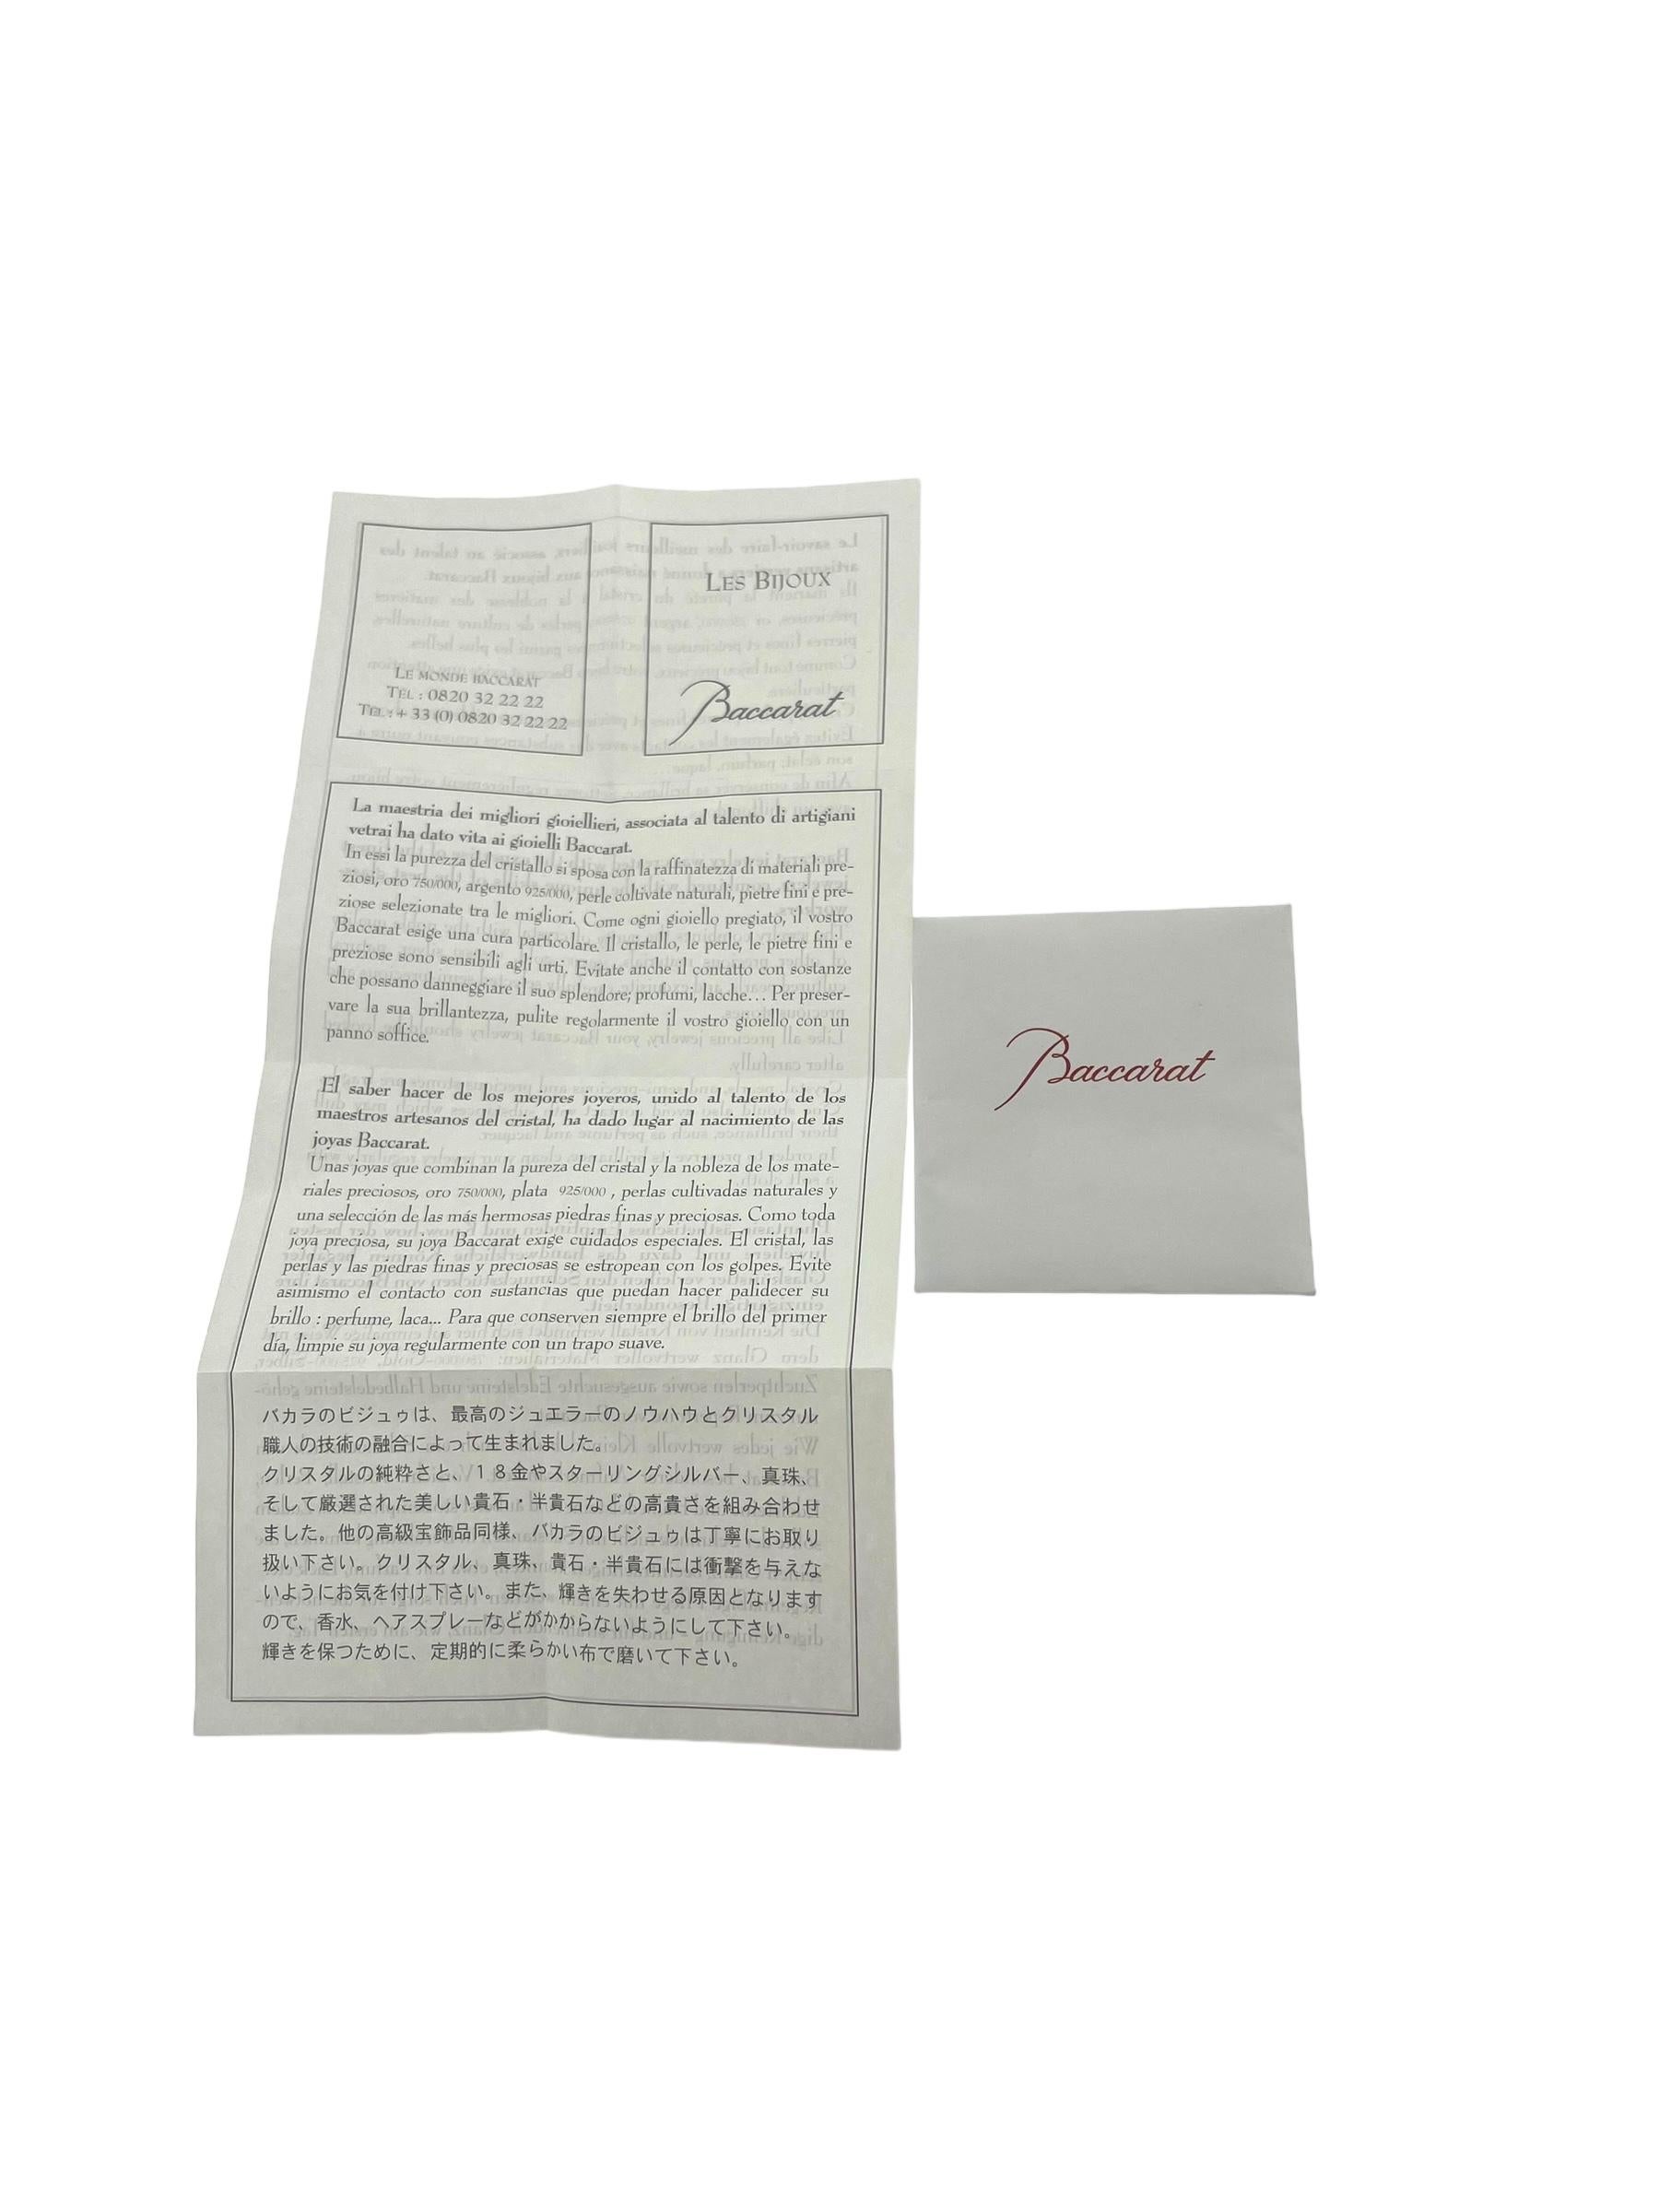 LE MONDE BACCARAT
TÉL : 0820 32 22 22
TÉL : + 33 (0) 0820 32 22 22
LES BIJOUX
Baccarat
La maestria dei migliori gioiellieri, associata al talento di artigiani
vetrai ha dato vita ai gioielli Baccarat.
In essi la purezza del cristallo si sposa con la raffinatezza di materiali pre-
ziosi, oro 750/000, argento 925/000, perle coltivate naturali, pietre fini e pre-
ziose selezionate tra le migliori. Come ogni gioiello pregiato, il vostro
Baccarat esige una cura particolare. Il cristallo, le perle, le pietre fini e
preziose sono sensibili agli urti. Evitate anche il contatto con sostanze
che possano danneggiare il suo splendore; profumi, lacche... Per preser-
vare la sua brillantezza, pulite regolarmente il vostro gioiello con un
panno soffice.
El saber hacer de los mejores joyeros, unido al talento de los
maestros artesanos del cristal, ha dado lugar al nacimiento de las
joyas Baccarat.
Unas joyas que combinan la pureza del cristal y la nobleza de los mate-
riales preciosos, oro 750/000, plata 925/000 , perlas cultivadas naturales y
una selección de las más hermosas piedras finas y preciosas. Como toda
joya preciosa, su joya Baccarat exige cuidados especiales. El cristal, las
perlas y las piedras finas y preciosas se estropean con los golpes. Evite
asimismo el contacto con sustancias que puedan hacer palidecer su
brillo : perfume, laca... Para que conserven siempre el brillo del primer
día, limpie su joya regularmente con un trapo suave.
バカラのビジュゥは、最高のジュエラーのノウハウとクリスタル
職人の技術の融合によって生まれました。
クリスタルの純粋さと、１８金やスターリングシルバー、真珠、
そして厳選された美しい貴石・半貴石などの高貴さを組み合わせ
ました。他の高級宝飾品同様、バカラのビジュゥは丁寧にお取り
扱い下さい。クリスタル、真珠、貴石・半貴石には衝撃を与えな
いようにお気を付け下さい。また、輝きを失わせる原因となります
ので、香水、ヘアスプレーなどがかからないようにして下さい。
輝きを保つために、定期的に柔らかい布で磨いて下さい。
Baccarat